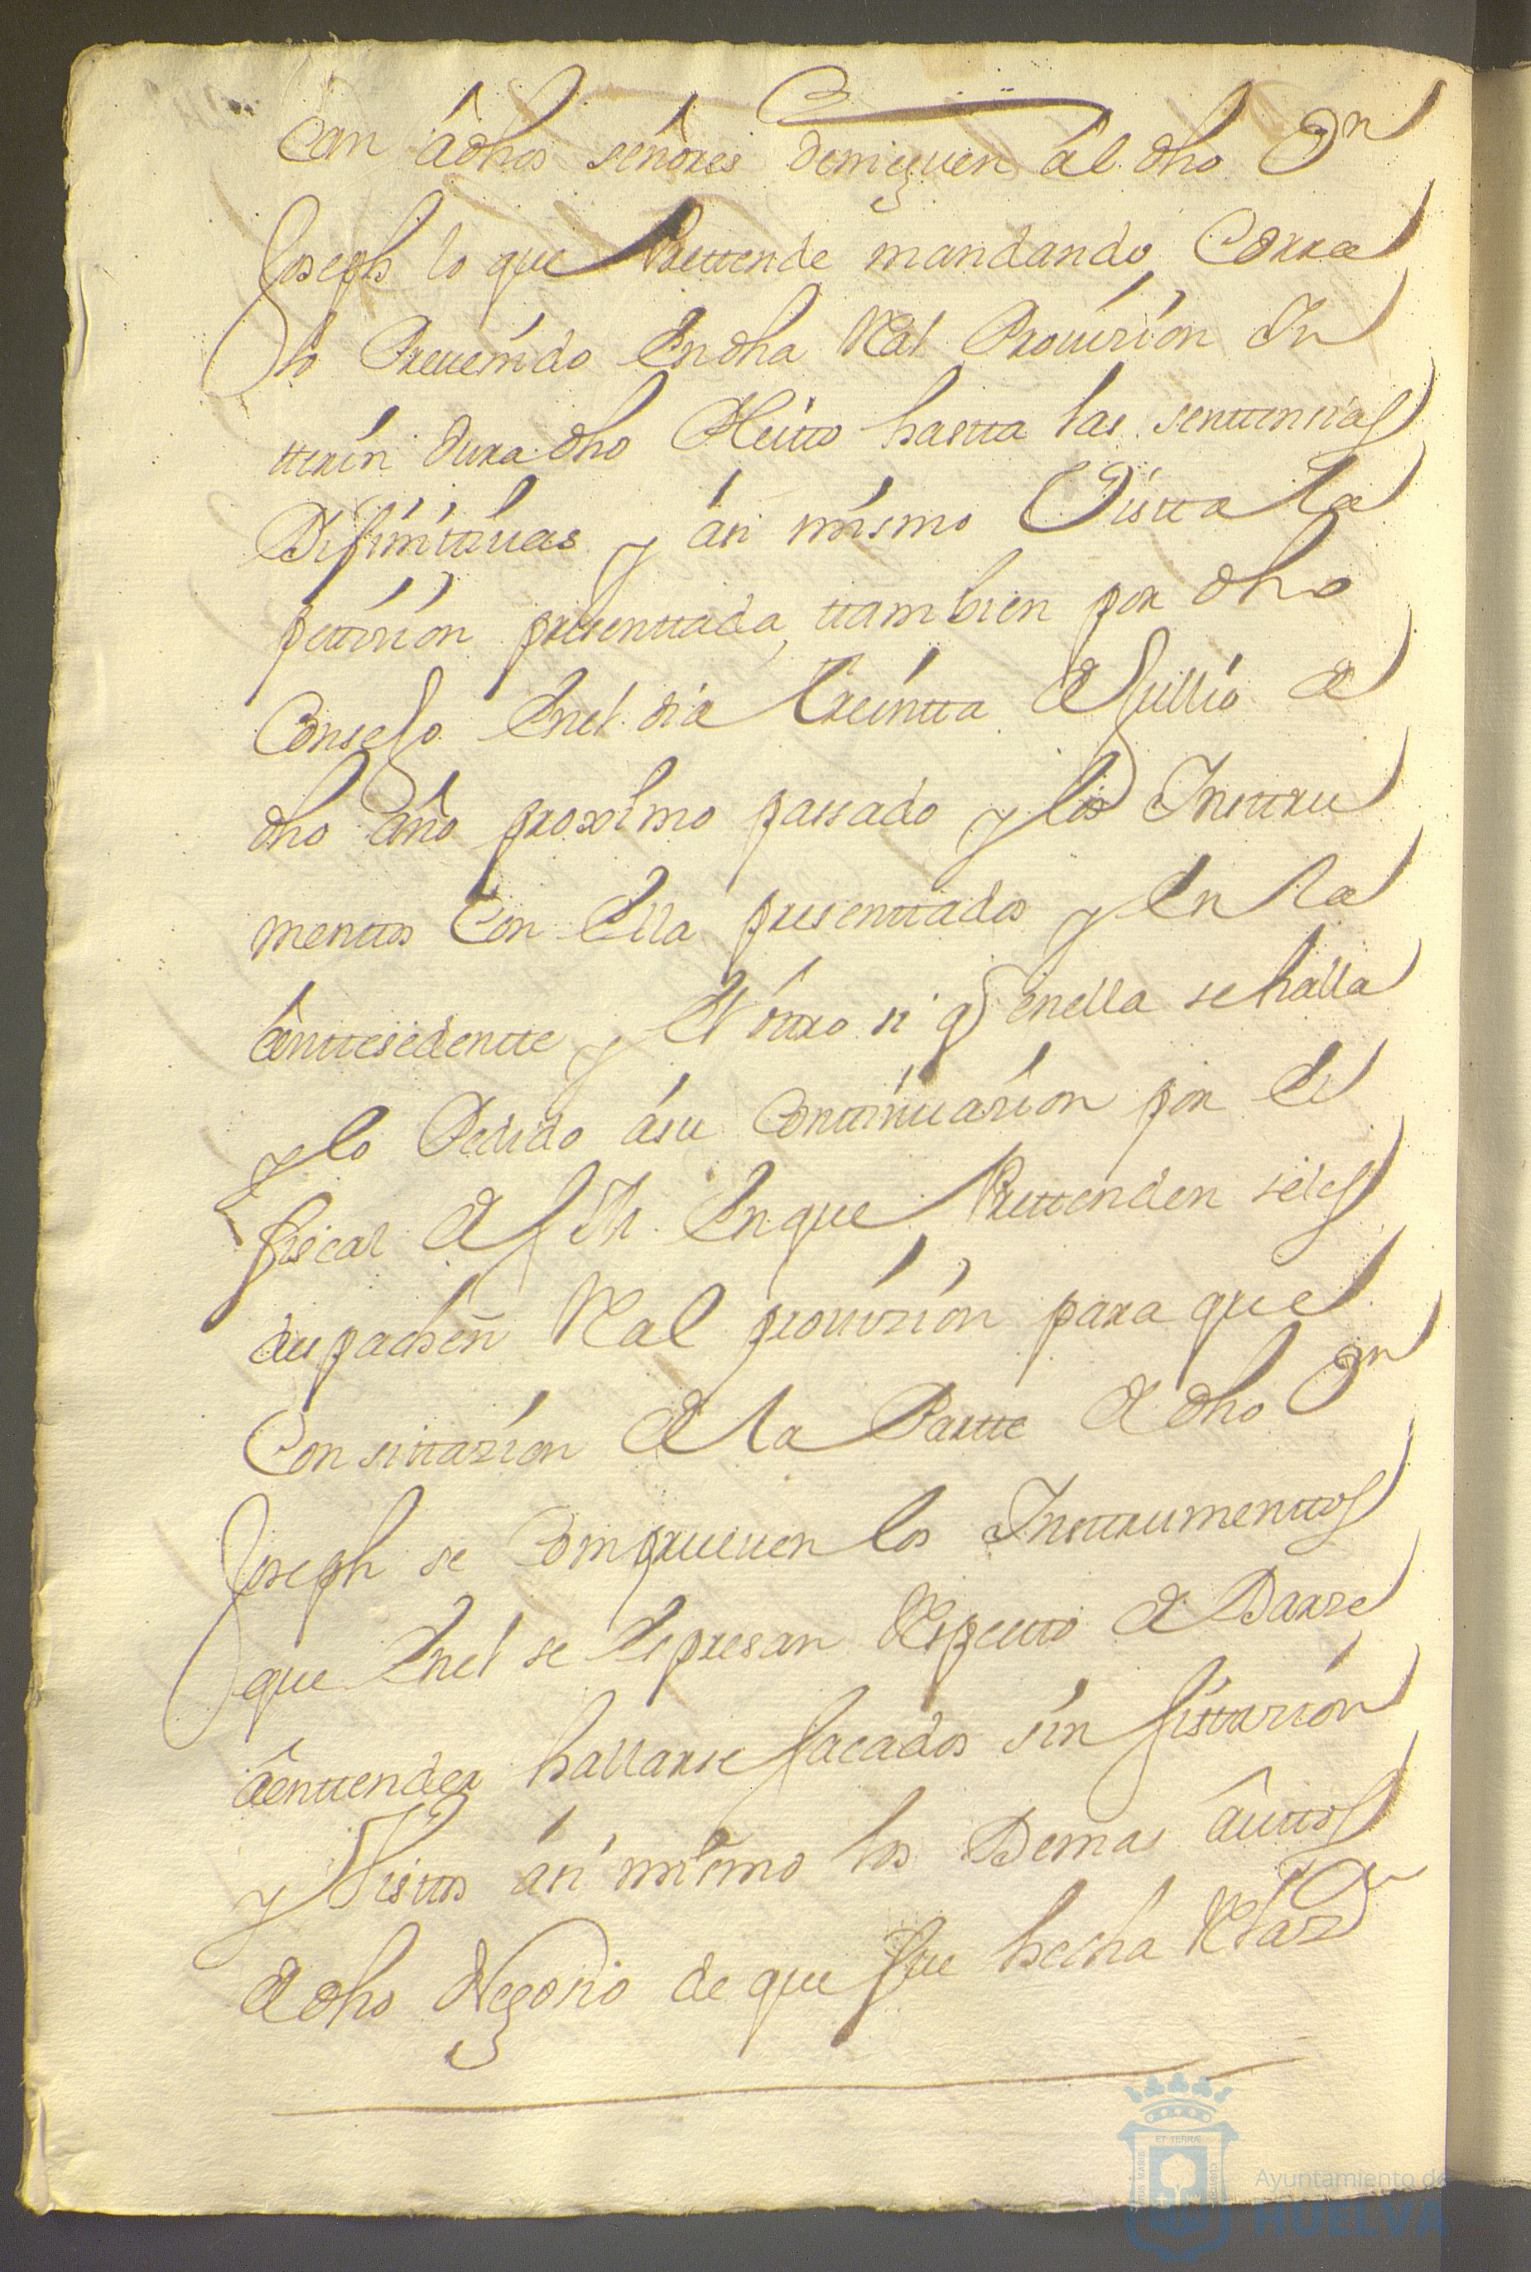 can âdhos señores denieguen al dho Dn
Joseph lo que Prettende mandando, Corra
lo Prevenido En dha Real Provision In
tterin dura dho Pleitto hastta las senttensias
Difinitivas y ási mismo Vistta la
pettision presenttada ttambien por dho
Consejo Enel dia treintta de Jullio de
dho año proximo passado y los Insttru
menttos Con Ella presenttados y En la
ânttesedentte y El ôttro si q enella se halla
y lo Pedido ásu Conttinuasion por El
fiscal de S M. En que Prettenden seles
despachen Real provizion para que
Con sittazion de la Partte de dho Dn
Joseph se Comprueven los Insttrumenttos
que Enel se Espresan Respectto de Darse
âenttender hallarse sacados sin sittazion
y Visttos ási mismo los Demas âuttos
de dho Negosio de que fue hecha Relazon
ET TERRÆ
Ayuntamiento de
HUELVA